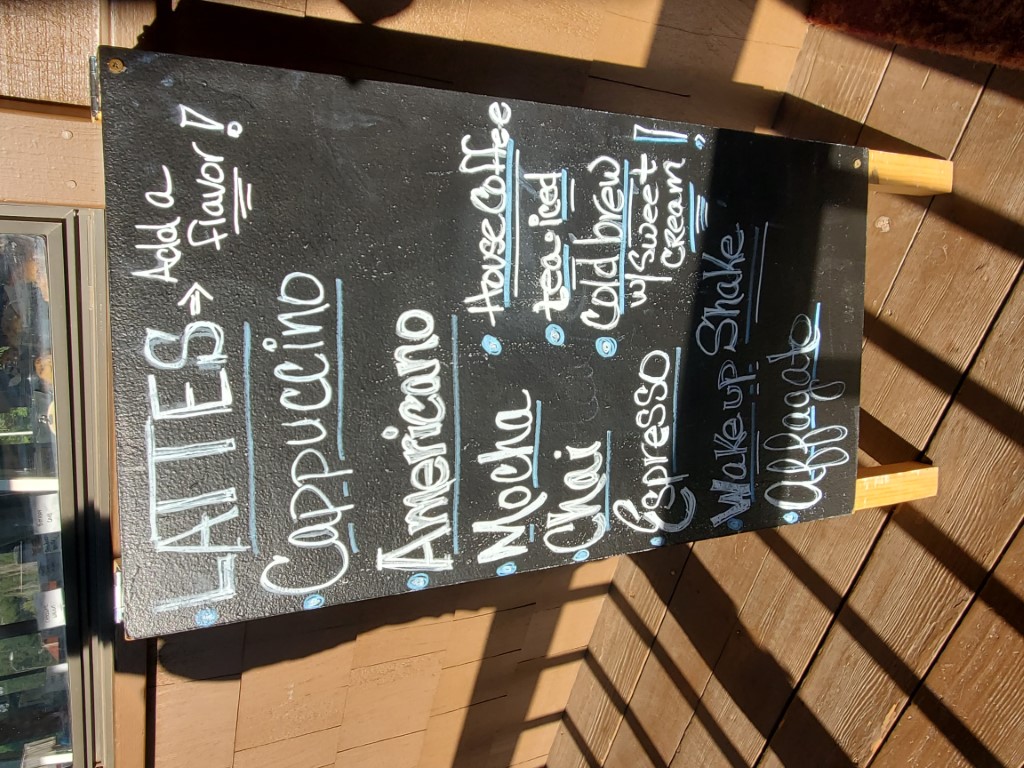 LATTES → Add a
flavor!
Cappuccino
Americano
Mocha
House coffee
Chai
tea iced
Espresso
Cold brew
w/ Sweet
Cream!!
Wake up Shake
Affagato